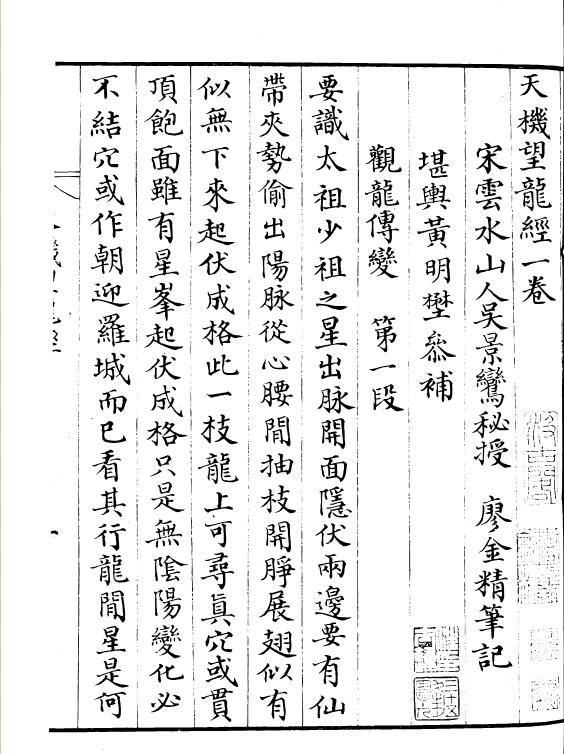 天機望龍經一卷
宋雲水山人吳景鸞秘授　廖金精筆記
堪輿黃明埜叅補
觀龍傳變　第一段
要識太祖少祖之星出脉開面隱伏兩邊要有仙
帶夾勢偷出陽脉從心腰間抽枝開腁展翅似有
似無下來起伏成格此一枝龍上可尋眞穴或貫
頂飽面雖有星峯起伏成格只是無陰陽變化必
不結穴或作朝迎羅城而已看其行龍間星是何